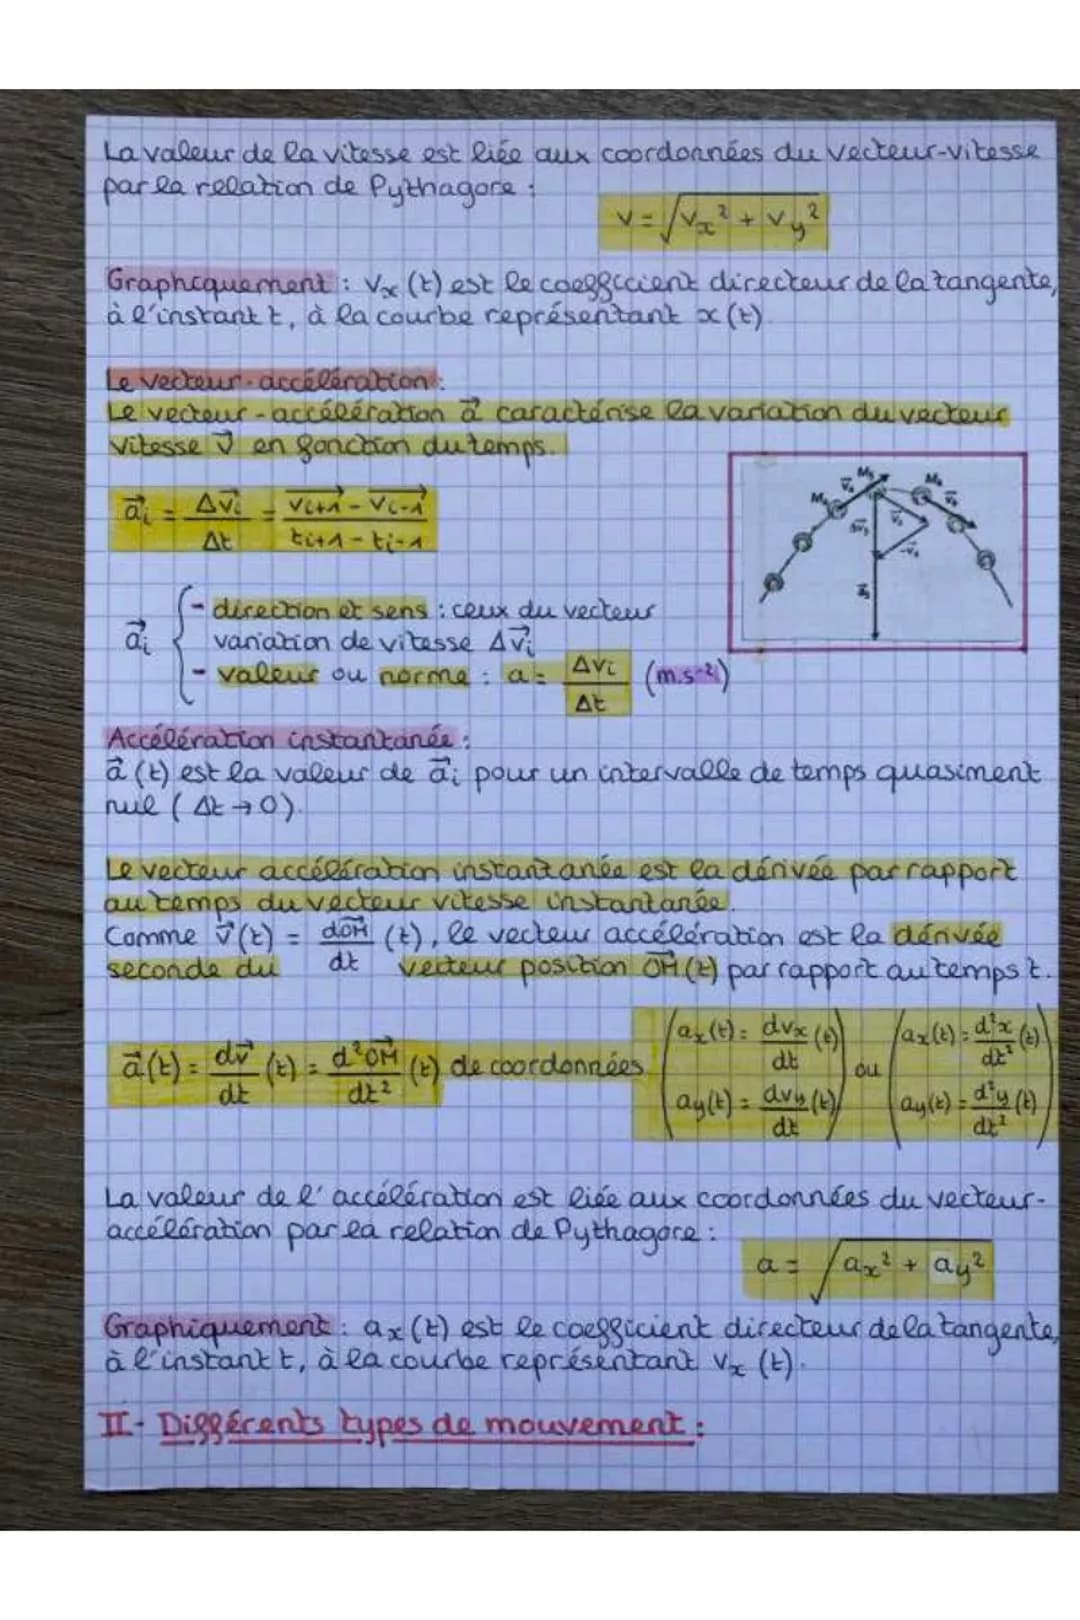 La valeur de la vitesse est liée aux coordonnées du vecteur-vitesse
par la relation de Pythagore :
v = √(vx² + vy²)
Graphiquement : vx (t) est le coefficient directeur de la tangente,
à l'instant t, à la courbe représentant x (t).
Le vecteur-accélération :
Le vecteur-accélération a⃗ caractérise la variation du vecteur
vitesse v⃗ en fonction du temps.
a⃗i = Δv⃗i / Δt = (v⃗i+1 - v⃗i-1) / (ti+1 - ti-1)
a⃗i { - direction et sens : ceux du vecteur
variation de vitesse Δv⃗i
- valeur ou norme : a = Δvi / Δt (m.s⁻²)
Accélération instantanée :
a⃗ (t) est la valeur de a⃗i pour un intervalle de temps quasiment
nul ( Δt → 0).
Le vecteur accélération instantanée est la dérivée par rapport
au temps du vecteur vitesse instantanée.
Comme v⃗ (t) = dOM⃗ / dt (t), le vecteur accélération est la dérivée
seconde du vecteur position OM⃗ (t) par rapport au temps t.
a⃗ (t) = dv⃗ / dt (t) = d²OM⃗ / dt² (t) de coordonnées ( ax(t) = dvx / dt (t) ou ( ax(t) = d²x / dt² (t)
ay(t) = dvy / dt (t) ay(t) = d²y / dt² (t) )
La valeur de l'accélération est liée aux coordonnées du vecteur-
accélération par la relation de Pythagore :
a = √(ax² + ay²)
Graphiquement : ax (t) est le coefficient directeur de la tangente,
à l'instant t, à la courbe représentant vx (t).
II - Différents types de mouvement :